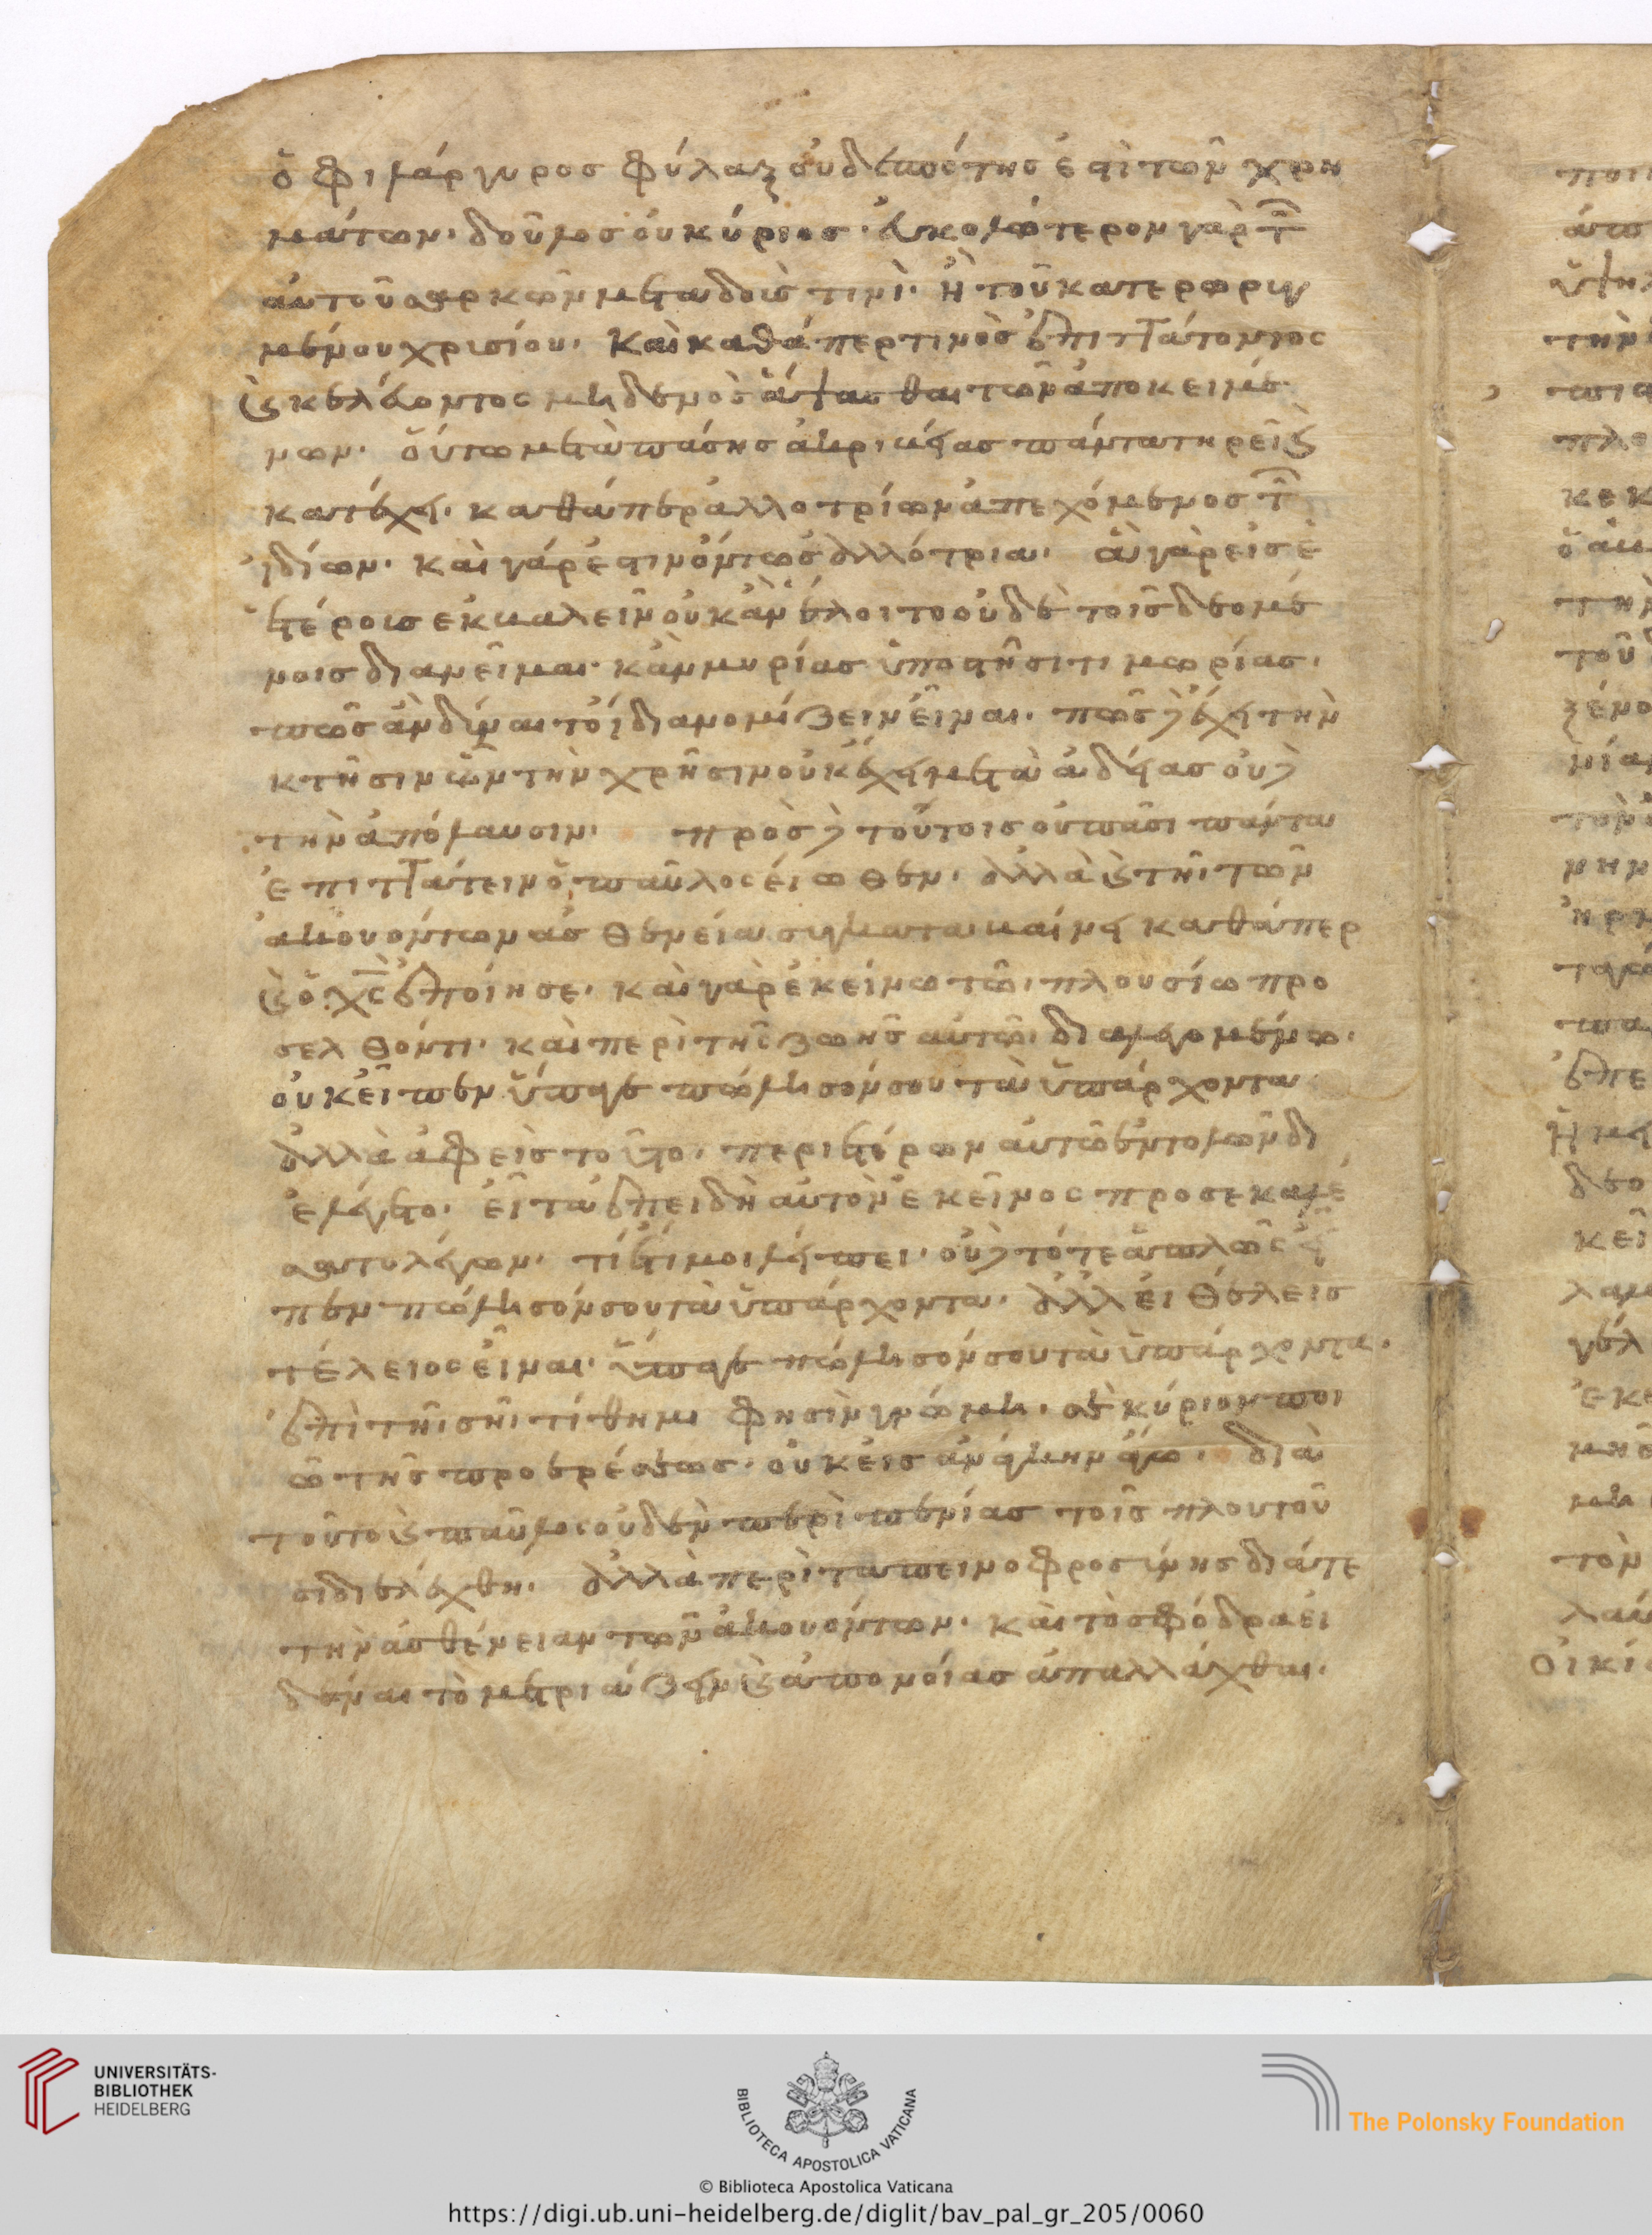 ὁ φιλάργυρος φύλαξ οὐ δεσπότης ἐστὶ τῶν χρη
μάτων· δοῦλος οὐ κύριος· εὐκολώτερον γὰρ τ
αὐτοῦ σαρκῶν μεταδοίς τινὶ· ἢ τοῦ κατερωριγ
μένου χρισίου· καὶ καθάπερ τινὸς ἐπιτάττοντος
καὶ κελεύοντος μηδενὸς ἅψασθαι τῶν ἀποκειμέ
νων· οὕτω μετὰ πάσης ἀκριβείας πάντα τηρεῖ καὶ
κατέχει· καθάπερ ἀλλοτρίων ἀπεχόμενος τ
ἰδίων· καὶ γάρ ἐστιν ὄντως ἀλλότρια· ἃ γὰρ εἰς ἑ
τέροις ἐκβαλεῖν οὐκ ἂν ἕλοιτο οὐδὲ τοῖς δεομέ
νοις διανεῖμαι· κἂν μυρίας ὑποστῆσι τιμωρίας·
πῶς ἂν δύναιτο ἴδια νομίζειν εἶναι· πῶς δὲ ἔχει τὴν
κτῆσιν ὧν τὴν χρῆσιν οὐκ ἔχει μετὰ ἀδείας οὐδὲ
τὴν ἀπόλαυσιν· πρὸς δὲ τούτοις οὐ πᾶσι πάντα
ἐπιτάττειν ὁ παῦλος εἴωθεν· ἀλλὰ καὶ τῆι τῶν
ἀκουόντων ἀσθενεία συγκαταβαίνει καθάπερ
καὶ ὁ χς ἐποίησε· καὶ γὰρ ἐκείνω τῶ πλουσίω προ
σελθόντι· καὶ περὶ τῆς ζωῆς αὐτῶ διαλεγομένω·
οὐκ εἶπεν ὕπαγε πώλησόν σου τὰ ὑπάρχοντα
ἀλλὰ ἀφεὶς τοῦτο· περι ἑτέρων αὐτῶ ἐντολῶν δι
ελέγετο· εἶτα ἐπειδὴ αὐτὸν ἐκεῖνος προσεκαλέ
σατο λέγων· τί ἔτι μοι λείπει· οὐδὲ τότε ἁπλῶς εἶ
πεν πώλησόν σου τὰ ὑπάρχοντα· ἀλλ εἰ θέλεις
τέλειος εἶναι· ὕπαγε πώλησόν σου τὰ ὑπάρχοντα·
ἐπὶ τῆι σῆι τίθημι φησὶν γνώμη· σὲ κύριον ποι
ῶ τῆς προερέσεως· οὐκ εἰς ἀνάγκην ἄγω· διὰ
τοῦτο καὶ παῦλος οὐδὲν περὶ πενίας τοῖς πλουτοῦ
σι διελέχθη· ἀλλὰ περὶ ταπεινοφροσύνης διά τε
τὴν ἀσθένειαν τῶν ἀκουόντων· καὶ τὸ σφόδρα εἰ
δέναι τὸ μετριάζειν καὶ ἀπονοίας ἀπαλλάχθαι·
UNIVERSITÄTS-
BIBLIOTHEK
HEIDELBERG
BIBLIOTECA APOSTOLICA VATICANA
The Polonsky Foundation
© Biblioteca Apostolica Vaticana
https://digi.ub.uni-heidelberg.de/diglit/bav_pal_gr_205/0060